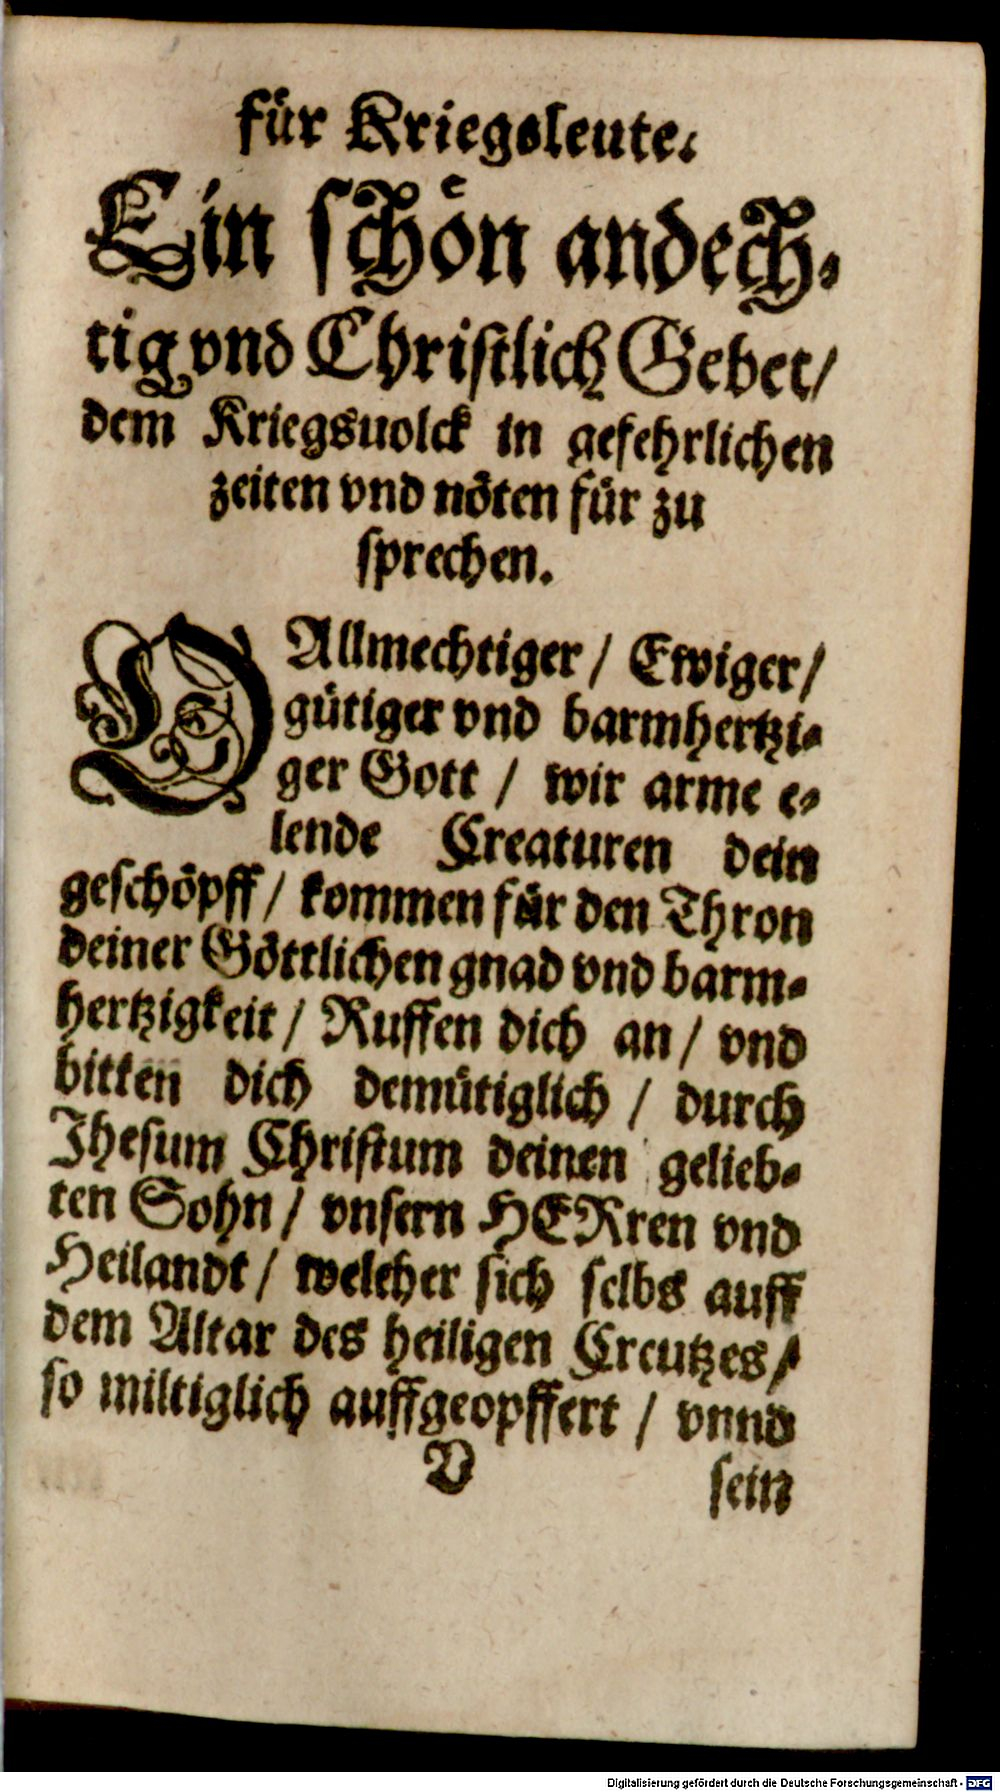 für Kriegsleute.
Ein schön andech-
tig vnd Christlich Gebet/
dem Kriegsuolck in gefehrlichen
zeiten vnd nöten für zu
sprechen.
O Allmechtiger / Ewiger/
gütiger vnd barmhertzi-
ger Gott / wir arme e-
lende Creaturen dein
geschöpff / kommen für den Thron
deiner Göttlichen gnad vnd barm-
hertzigkeit / Ruffen dich an / vnd
bitten dich demütiglich / durch
Jhesum Christum deinen gelieb-
ten Sohn / vnsern HERren vnd
Heilandt / welcher sich selbs auff
dem Altar des heiligen Creutzes /
so miltiglich auffgeopffert / vnnd
V sein
Digitalisierung gefördert durch die Deutsche Forschungsgemeinschaft - DFG